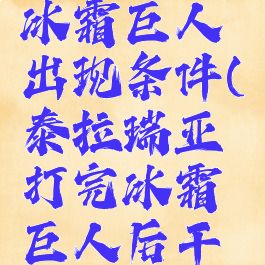 冰霜巨人
出现条件(
泰拉瑞亚
打完冰霜
巨人后干